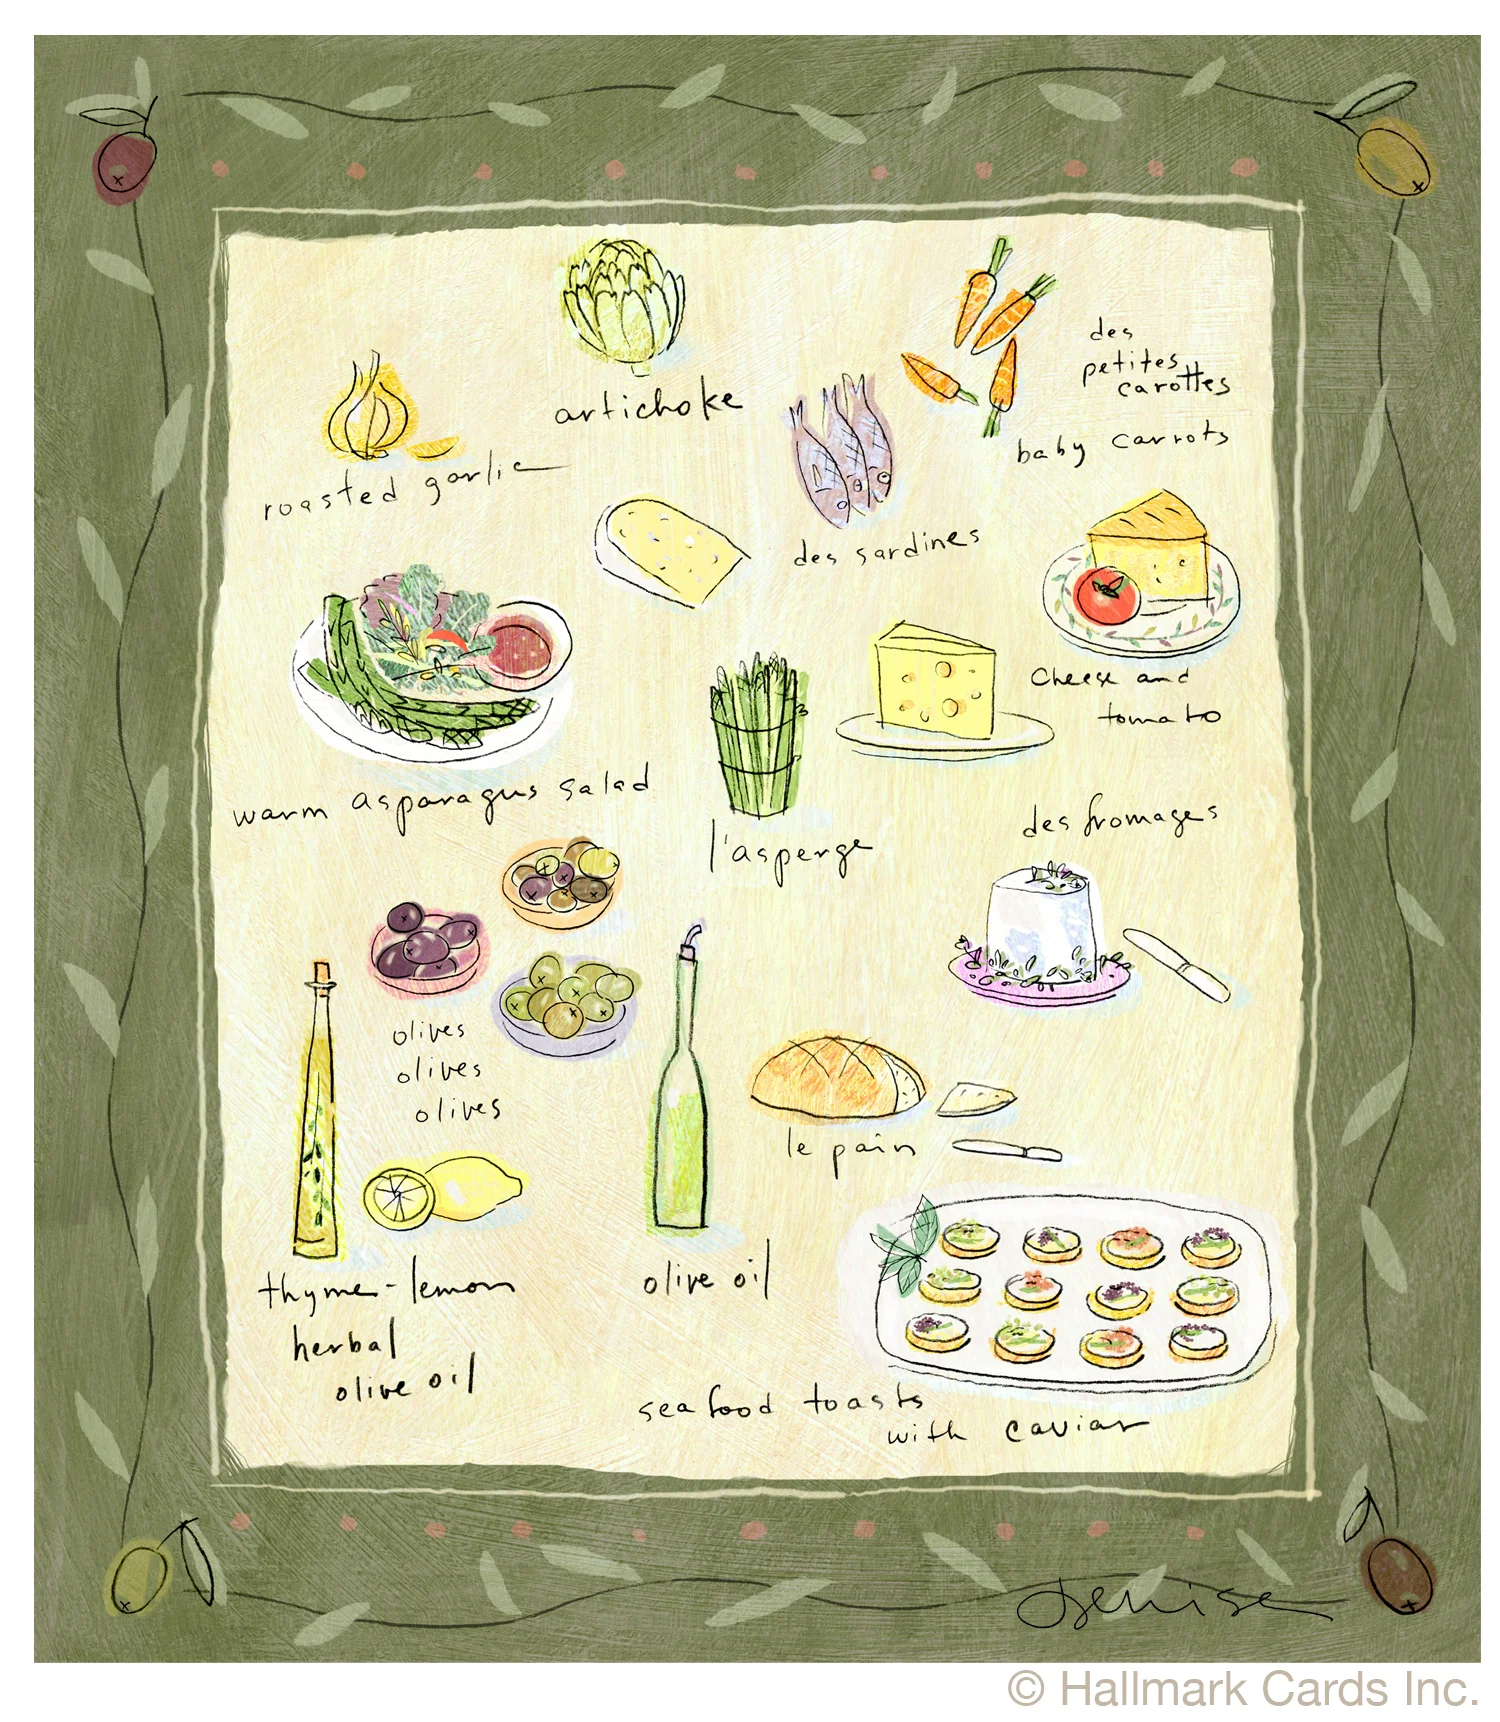 artichoke
des
petites
carottes
baby carrots
roasted garlic
des sardines
Cheese and
tomato
warm asparagus salad
l'asperge
des fromages
olives
olives
olives
le pain
thyme-lemon
herbal
olive oil
olive oil
seafood toasts
with caviar
denise
© Hallmark Cards Inc.